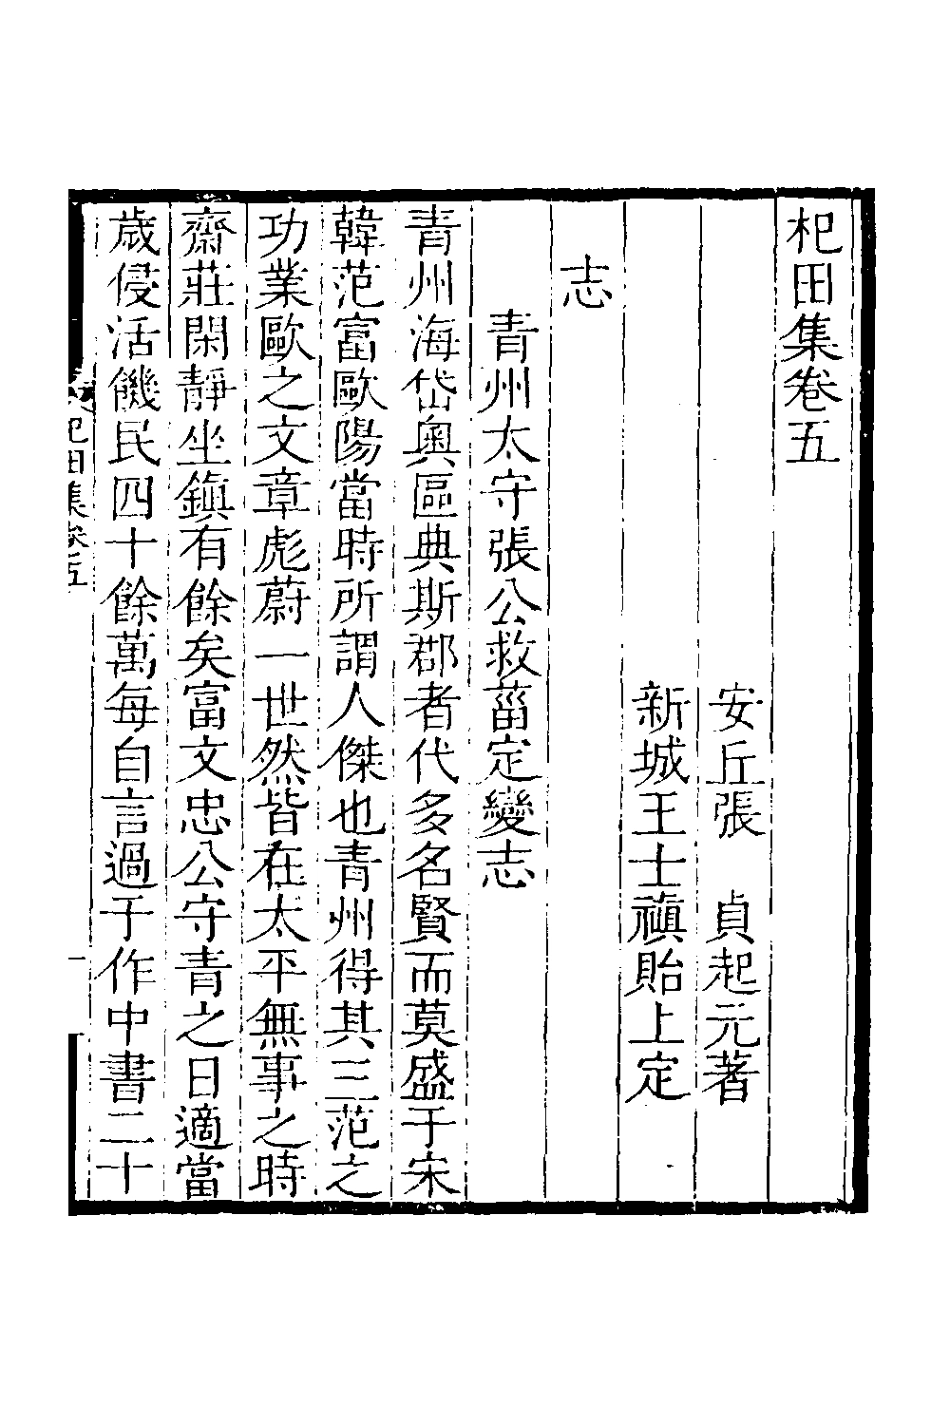 杞田集卷五
安丘張　貞起元著
新城王士禛貽上定
志
青州太守張公救菑定變志
青州海岱奧區典斯郡者代多名賢而莫盛于宋
韓范富歐陽當時所謂人傑也青州得其三范之
功業歐之文章彪蔚一世然皆在太平無事之時
齋莊閑靜坐鎮有餘矣富文忠公守青之日適當
歲侵活饑民四十餘萬每自言過于作中書二十
杞田集卷五
一